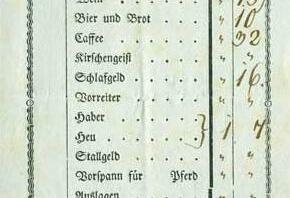 Wein . . . . . „ 15
Bier und Brot . . . . „ 10
Caffee . . . . . „ 32
Kirschengeist . . . . „ „
Schlafgeld . . . . . „ 16.
Vorreiter . . . . . „ „
Haber . . . . .
Heu . . . . . } 1 4
Stallgeld . . . . . „ „
Vorspann für Pferd „ „
Auslagen . . . . „ „